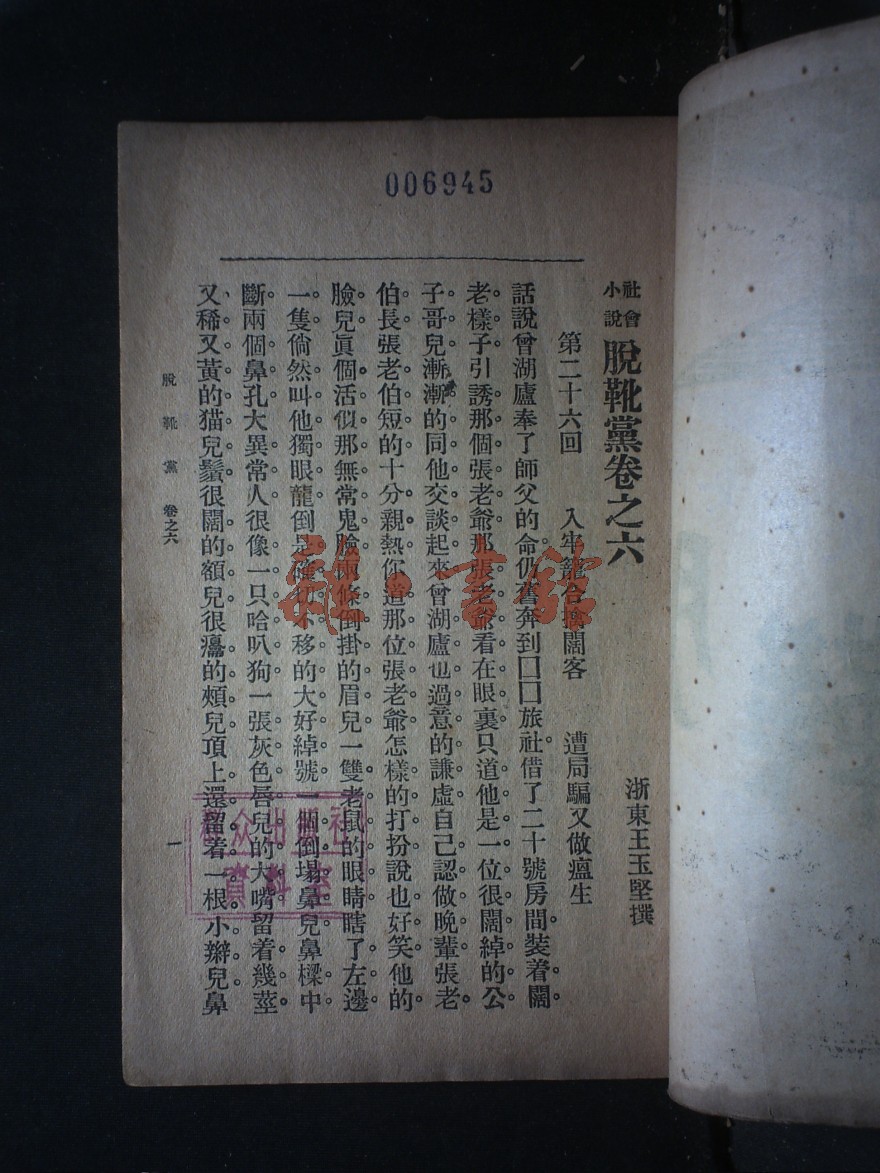 006945
社會
小說
脫靴黨卷之六
浙東王玉堅撰
第二十六回 入牢籠合擒闊客 遭局騙又做瘟生
話說曾湖廬奉了師父的命仍舊奔到囗囗旅社借了二十號房間裝着闊
老樣子引誘那個張老爺那張老爺看在眼裏只道他是一位很闊綽的公
子哥兒漸漸的同他交談起來曾湖廬也過意的謙虛自己認做晚輩張老
伯長張老伯短的十分親熱你道那位張老爺怎樣的打扮說也好笑他的
臉兒眞個活似那無常鬼臉兩條倒掛的眉兒一雙老鼠的眼睛瞎了左邊
一隻倘然叫他獨眼龍倒是確切不移的大好綽號一個倒塌鼻兒鼻樑中
斷兩個鼻孔大異常人很像一只哈叭狗一張灰色唇兒的大嘴留着幾莖
又稀又黃的猫兒鬚很闊的額兒很癟的頰兒頂上還留着一根小辮兒鼻
脫靴黨 卷之六
一
雜·書館
众出版社
資料室